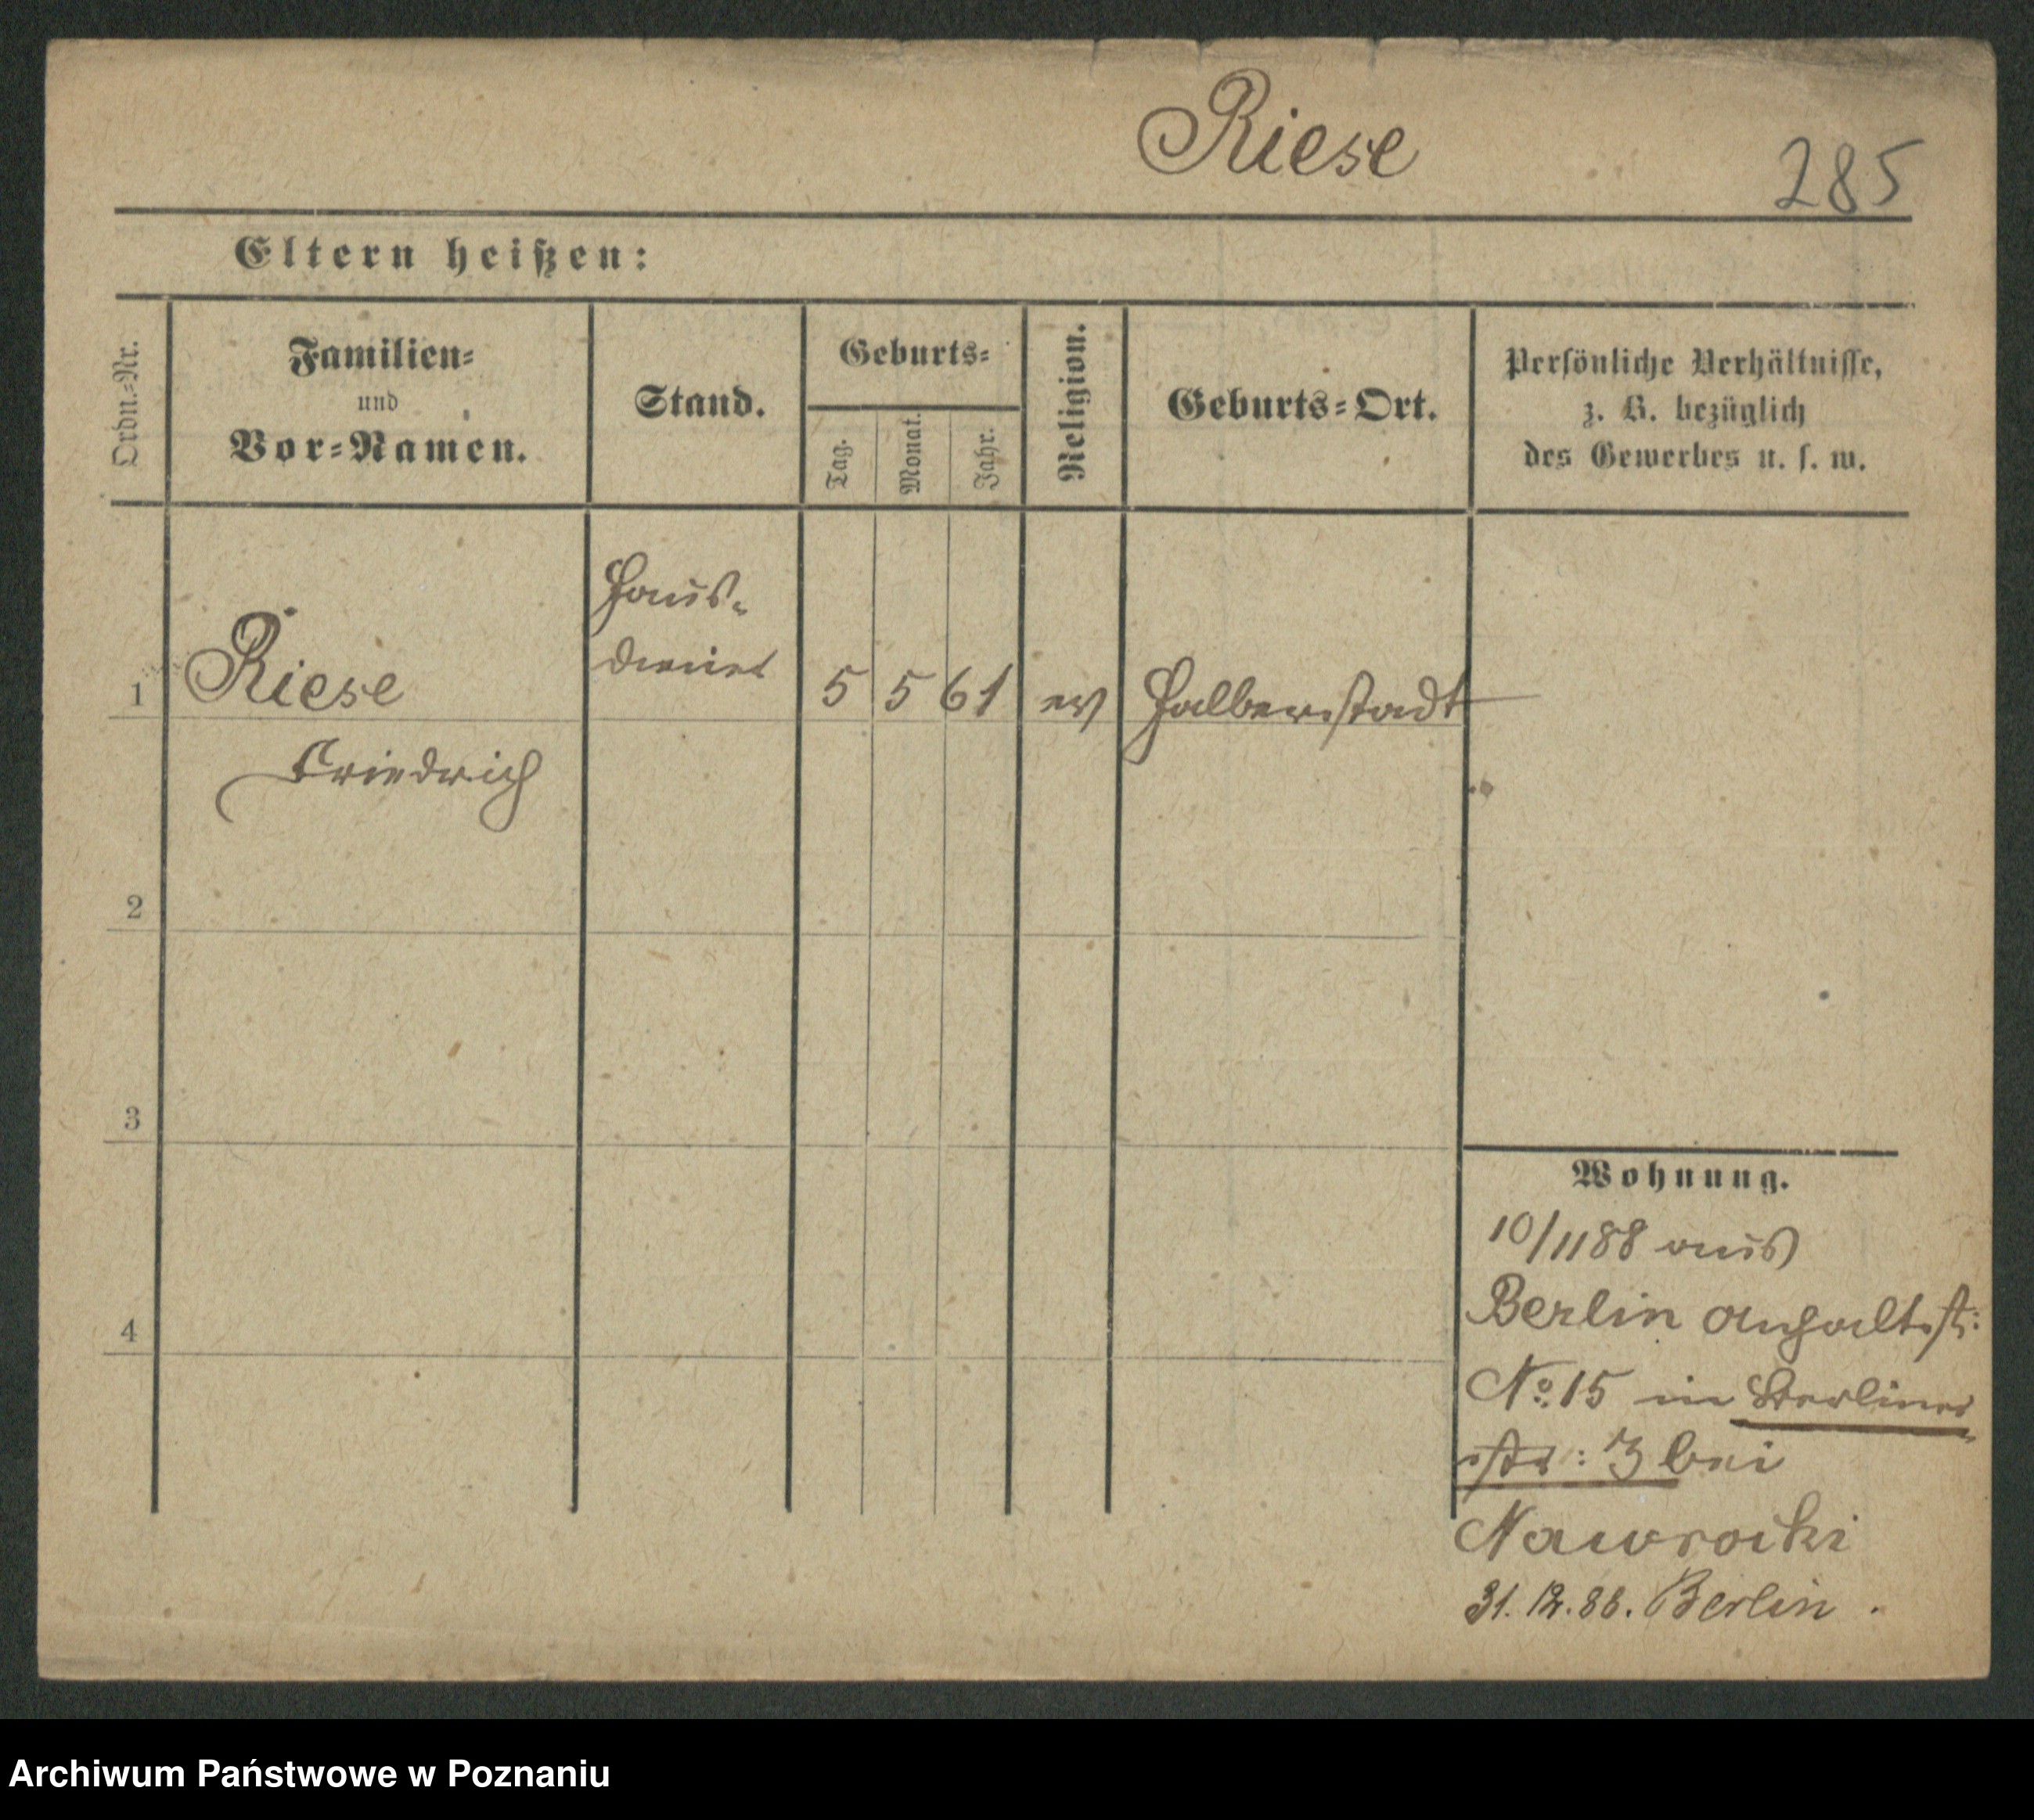 Riese
285
Eltern heißen:
Ordn.-Nr.
Familien-
und
Vor-Namen.
Stand.
Geburts-
Tag.
Monat.
Jahr.
Religion.
Geburts-Ort.
Persönliche Verhältnisse,
z. B. bezüglich
des Gewerbes u. s. w.
Haus-
diener
1 Riese 5 5 61 ev Halberstadt
Friedrich
2
3
4
Wohnung.
10/11 88 aus
Berlin Anhaltstr:
No. 15 in Berliner
str: 3 bei
Nawrocki
31. 12. 88. Berlin.
Archiwum Państwowe w Poznaniu